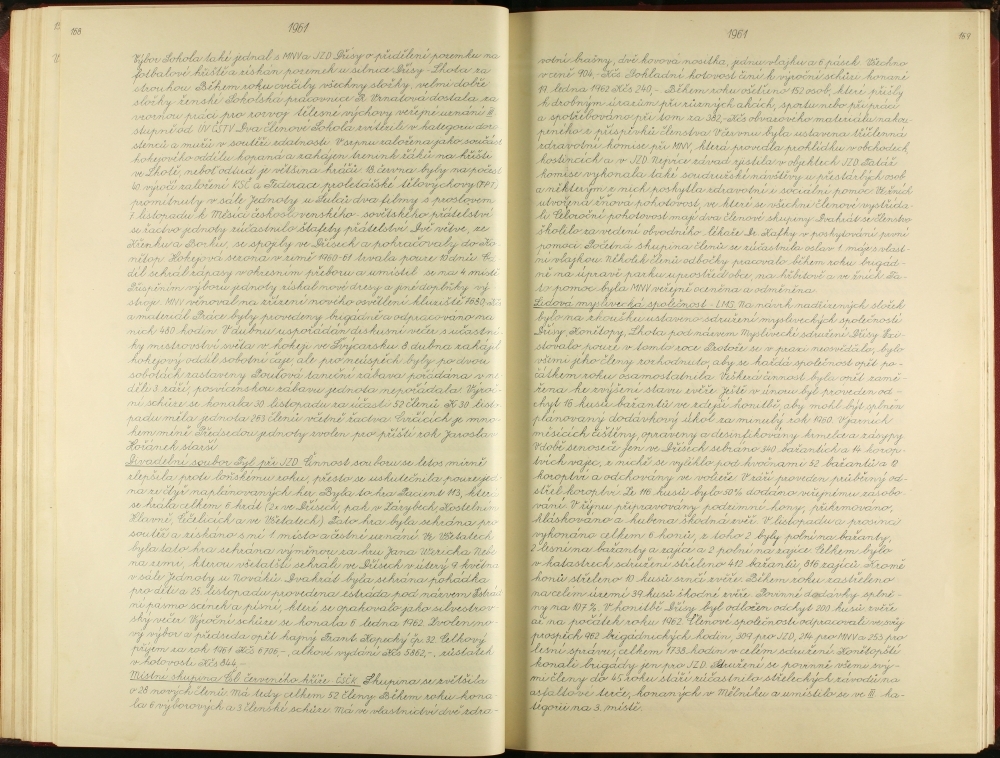 168
1961
Výbor Sokola také jednal s MNV a JZD Dřísy o přidělení pozemku na
fotbalové hřiště a získán pozemek u silnice Dřísy - Lhota za
strouhou. Během roku cvičily všechny složky, velmi dobře
složky ženské. Sokolská pracovnice R. Vrnatová dostala za
vzornou práci pro rozvoj tělesné výchovy veřejné uznání III.
stupně od ÚV ČSTV. Dva členové Sokola zvítězili v kategorii doro-
stenců a mužů v soutěži zdatnosti. V srpnu založena jako součást
hokejového oddílu kopaná a zahájen trenink žáků na hřišti
ve Lhotě, neboť odtud je většina hráčů. 18. června byly na počest
40. výročí založení KSČ a Federace proletářské tělovýchovy (FPT)
promítnuty v sále Jednoty u Dulců dva filmy s proslovem.
7. listopadu k Měsíci československého - sovětského přátelství
se žactvo jednoty zúčastnilo štafety přátelství. Dvě větve, ze
Křenku a Borku, se spojily ve Dřísech a pokračovaly do Ko-
nětop. Hokejová sezona v zimě 1960-61 trvala pouze 10 dnů. Od-
díl sehrál zápasy v okresním přeboru a umístil se na 4. místě.
Přispěním výboru jednoty získal nové dresy a jiné doplňky vý-
stroje. MNV věnoval na zřízení nového osvětlení kluziště 7650.- Kčs
a materiál. Práce byly provedeny brigádně a odpracováno na
nich 480 hodin. V dubnu uspořádán diskusní večer s účastní-
ky mistrovství světa v hokeji ve Švýcarsku. 8. dubna zahájil
hokejový oddíl sobotní čaje, ale pro neúspěch byly po dvou
sobotách zastaveny. Pouťová taneční zábava pořádána v ne-
děli 3. září, posvícenskou zábavu jednota nepořádala. Výroč-
ní schůze se konala 30. listopadu za účasti 52 členů. K 30. listo-
padu měla jednota 263 členů včetně žactva. Cvičících je mno-
hem méně. Předsedou jednoty zvolen pro příští rok Jaroslav
Hořánek starší.
Divadelní soubor Tyl při JZD. Činnost souboru se letos mírně
zlepšila proti loňskému roku, přesto se uskutečnila pouze jed-
na ze čtyř naplánovaných her. Byla to hra Pacient 113, která
se hrála celkem 6 krát (2x ve Dřísech, pak v Zárybech, Kostelním
Hlavně, Čečelicích a ve Všetatech). Tato hra byla sehrána pro
soutěž a získáno s ní 1. místo a čestné uznání. Ve Všetatech
byla tato hra sehrána výměnou za hru Jana Wericha Nebe
na zemi, kterou všetatští sehráli ve Dřísech v úterý 9. května
v sále Jednoty u Nováků. Dvakrát byla sehrána pohádka
pro děti a 25. listopadu provedena estráda pod názvem Estrád-
ní pásmo scének a písní, které se opakovalo jako silvestrov-
ský večer. Výroční schůze se konala 6. ledna 1962. Zvolen no-
vý výbor a předseda opět hajný Frant. Kopecký čp. 32. Celkový
příjem za rok 1961 Kčs 6706,-, celkové vydání Kčs 5862,-, zůstatek
v hotovosti Kčs 844.-.
Místní skupina Čs. červeného kříže - ČSČK. Skupina se zvětšila
o 28 nových členů. Má tedy celkem 52 členy. Během roku kona-
la 6 výborových a 3 členské schůze. Má ve vlastnictví dvě zdra-
1961
169
votní brašny, dvě kovová nosítka, jednu vlajku a 6 pásek. Všechno
v ceně 904.- Kčs. Pokladní hotovost činí k výroční schůzi konané
19. ledna 1962 Kčs 240.-. Během roku ošetřeno 152 osob, které přišly
k drobným úrazům při různých akcích, sportu nebo při práci
a spotřebováno při tom za 382,- Kčs obvazového materiálu nakou-
peného z příspěvků členstva. V červnu byla ustavena tříčlenná
zdravotní komise při MNV, která provedla prohlídku v obchodech,
hostincích a v JZD. Nejvíce závad zjistila v objektech JZD. Tatáž
komise vykonala také soudružské návštěvy u přestárlých osob
a některým z nich poskytla zdravotní a sociální pomoc. Ve žních
utvořena znova pohotovost, ve které se všichni členové vystřída-
li. Celoroční pohotovost mají dva členové skupiny. Dvakrát se členstvo
školilo za vedení obvodního lékaře Dr. Kafky v poskytování první
pomoci. Početná skupina členů se zúčastnila oslav 1. máje s vlast-
ní vlajkou. Několik členů odbočky pracovalo během roku brigád-
ně na úpravě parku uprostřed obce, na hřbitově a ve žních. Ta-
to pomoc byla MNV veřejně oceněna a odměněna.
Lidová myslivecká společnost - LMS. Na návrh nadřízených složek
bylo na zkoušku ustaveno sdružení mysliveckých společností
Dřísy, Konětopy, Lhota pod názvem Myslivecké sdružení Dřísy. Exi-
stovalo pouze v tomto roce. Protože se v praxi neosvědčilo, bylo
všemi jeho členy rozhodnuto, aby se každá společnost opět po-
čátkem roku osamostatnila. Veškerá činnost byla opět zamě-
řena ke zvýšení stavu zvěře. Ještě v únoru byl proveden od-
chyt 16 kusů bažantů ve zdejší honitbě, aby mohl být splněn
plánovaný dodávkový úkol za minulý rok 1960. V jarních
měsících čištěny, opraveny a desinfikovány krmelce a zásypy.
V době senoseče jen ve Dřísech sebráno 340 bažantích a 14 korop-
tvích vajec, z nichž se vylíhlo pod kvočnami 52 bažantů a 10
koroptví a odchovány ve voliéře. V září proveden průběrný od-
střel koroptví. Ze 116 kusů bylo 50% dodáno veřejnému zásobo-
vání. V říjnu připravovány podzimní hony, přikrmováno,
hláskováno a hubena škodná zvěř. V listopadu a prosinci
vykonáno celkem 6 honů, z toho 2 byly polní na bažanty,
2 lesní na bažanty a zajíce a 2 polní na zajíce. Celkem bylo
v katastrech sdružení střeleno 412 bažantů, 816 zajíců. Kromě
honů střeleno 10 kusů srnčí zvěře. Během roku zastřeleno
na celém území 39 kusů škodné zvěře. Povinné dodávky splně-
ny na 107%. V honitbě Dřísy byl odložen odchyt 200 kusů zvěře
až na počátek roku 1962. Členové společnosti odpracovali ve svůj
prospěch 962 brigádnických hodin, 309 pro JZD, 214 pro MNV a 253 pro
lesní správu, celkem 1738 hodin v celém sdružení. Konětopští
konali brigády jen pro JZD. Sdružení se povinně všemi svý-
mi členy do 45 roku stáří zúčastnilo střeleckých závodů na
asfaltové terče, konaných v Mělníku a umístilo se ve III. ka-
tegorii na 3. místě.